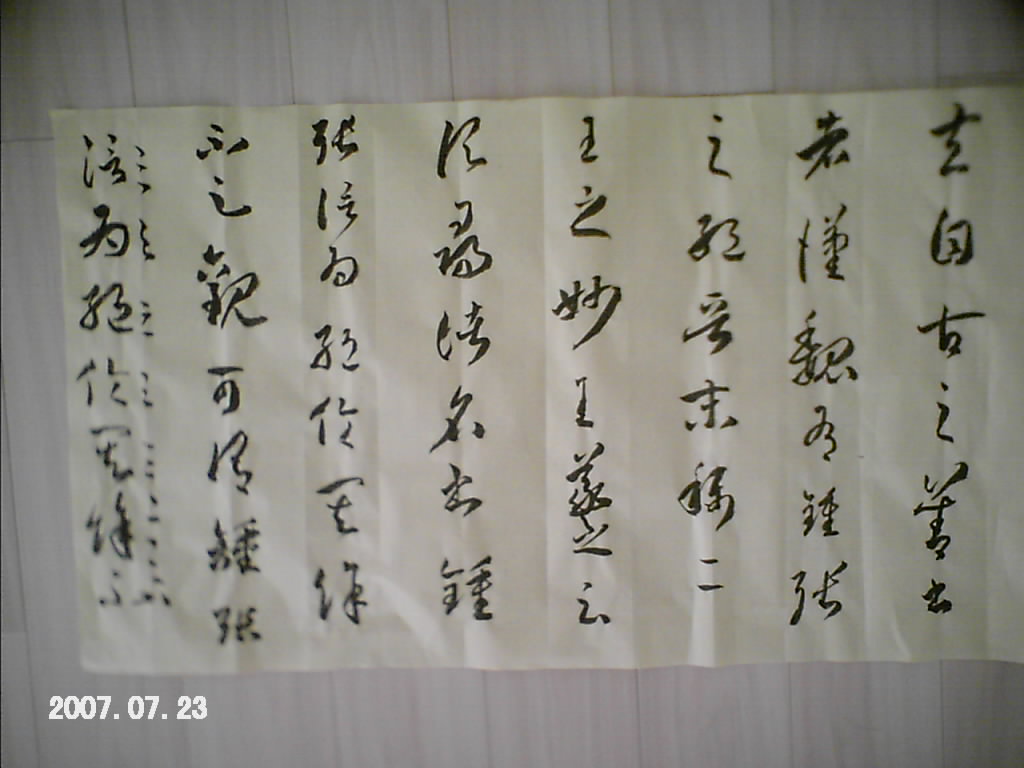 夫自古之善書
者漢魏有鍾張
之絕晉末稱二
王之妙王羲之云
頃尋諸名書鍾
張信為絕倫其餘
不足觀可謂鍾張
信為絕倫其餘不
2007.07.23